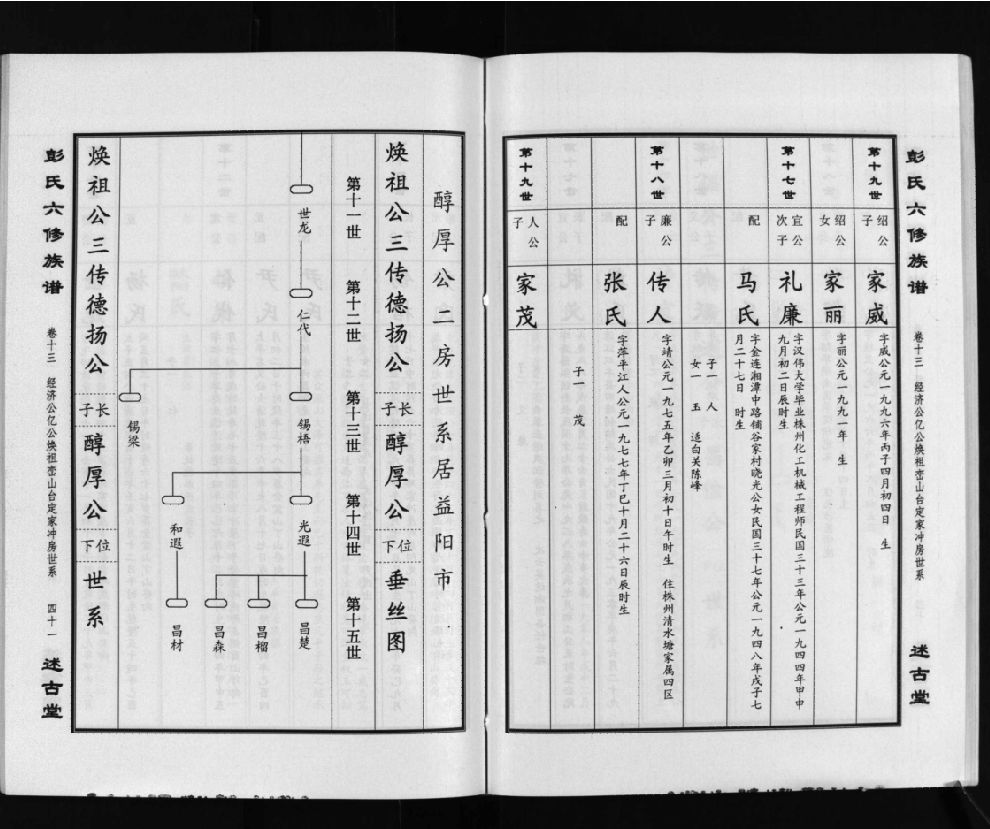 彭氏六修族谱
卷十三 经济公亿公焕祖峦山台定家冲房世系
述古堂
第十九世
绍公
子
家威
字威公元一九九六年丙子四月初四日 生
绍公
女
家丽
字丽公元一九九一年 生
第十七世
宜公
次子
礼廉
字汉伟大学毕业株州化工机械工程师民国三十三年公元一九四四年甲申
九月初二日辰时生
配
马氏
字金连湘潭中路铺谷家村晓光公女民国三十七年公元一九四八年戊子七
月二十七日 时生
子一 人
女一 玉 适白关陈峰
第十八世
廉公
子
传人
字靖公元一九七五年乙卯三月初十日午时生 住株州清水塘家属四区
配
张氏
字萍平江人公元一九七七年丁巳十月二十六日辰时生
子一 茂
第十九世
人公
子
家茂
醇厚公二房世系居益阳市
焕祖公三传德扬公
长子
醇厚公
位下
垂丝图
第十一世
第十二世
第十三世
第十四世
第十五世
世龙
仁代
锡梧
锡梁
光遐
和遐
昌楚
昌榴
昌森
昌材
焕祖公三传德扬公
长子
醇厚公
位下
世系
彭氏六修族谱
卷十三 经济公亿公焕祖峦山台定家冲房世系
四十一
述古堂